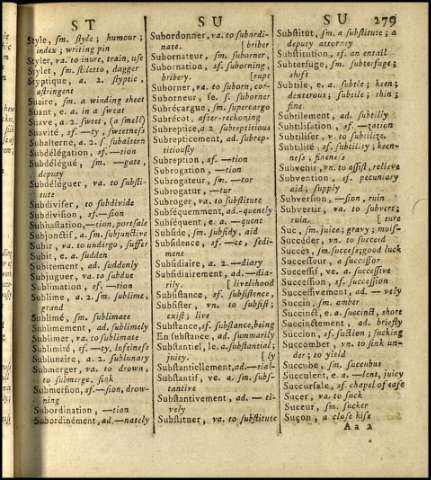 ST
SU
SU 279
Style, sm. style; humour;
index; writing pin
Styler, va. to inure, train, use
Stylet, sm. stiletto, dagger
Styptique, a. 2. styptic,
astringent
Suaire, sm. a winding sheet
Suant, e, a. in a sweat
Suave, a. 2. sweet, (a smell)
Suavité, sf. —ty, sweetness
Subalterne, a. 2. s. subaltern
Subdélégation, sf. —tion
Subdélégué, sm. —gate,
deputy
Subdéléguer, va. to substitute
Subdiviser, to subdivide
Subdivision, sf. —sion
Subhastation, —tion, portsale
Subjonctif, a. sm. subjunctive
Subir, va. to undergo, suffer
Subit, e a. sudden
Subitement, ad. suddenly
Subjuguer, va. to subdue
Sublimation, sf. —tion
Sublime, a. 2. sm. sublime,
grand
Sublimé, sm. sublimate
Sublimement, ad. sublimely
Sublimer, va. to sublimate
Sublimité, sf. —ty, loftiness
Sublunaire, a. 2. sublunary
Submerger, va. to drown,
to submerge, sink
Submersion, sf.—sion, drowning
Subordination, —tion
Subordinément, ad. —nately
Subordonner, va. to subordinate. [briber
Subornateur, sm. suborner,
Subornation, sf. suborning,
bribery. [rupt
Suborner, va. to suborn, cor-
Suborneur, se, s. suborner
Subrécargue, sm. supercargo
Subrécot, after-reckoning
Subreptice, a 2. subreptitious
Subrepticement, ad. subreptitiously
Subreption, sf. —tion
Subrogation, —tion
Subrogateur, sm. —tor
Subrogatur, —tur
Subroger, va. to substitute
Subséquemment, ad.-quently
Subséquent, e a. —quent
Subside, sm. subsidy, aid
Subsidence, sf. —ce, sediment
Subsidiaire, a. 2. —diary
Subsidiairement, ad. —diarily. [livelihood
Subsistance, sf. subsistence,
Subsister, vn. to subsist;
exist; live
Substance, sf. substance, being
En substance, ad. summarily
Substantiel, le, a. substantial;
juicy. [ly
Substantiellement, ad.—tial-
Substantif, ve, a. sm. substantive
Substantivement, ad. —tively
Substituer, va. to substitute
Substitut, sm. a substitute; a
deputy attorney
Substitution, sf. an entail
Subterfuge, sm. subterfuge;
shift
Subtile, e a. subtle; keen;
dexterous; subtile; thin;
fine.
Subtilement, ad. subtilly
Subtilisation, sf. —zation
Subtiliser, v. to subtilize
Subtilité, sf. subtility; keenness, fineness
Subvenir, vn. to assist, relieve
Subvention, sf. pecuniary
aid, supply
Subversion, —sion, ruin
Subvertir, va. to subvert;
ruin.
Suc, sm. juice; gravy; mois-
Succéder, vn. to succeed
Succès, sm. success; good luck
Successeur, a successor
Successif, ve, a. successive
Succession, sf. succession
Successivement, ad. —vely
Succin, sm. amber
Succinct, e a. succinct, short
Succinctement, ad. briefly
Succion, sf. suction; sucking
Succomber, vn. to sink under; to yield
Succube, sm. succubus
Succulent, e a. —lent, juicy
Succursale, sf. chapel of ease
Sucer, va. to suck
Suceur, sm. sucker
Suçon, a close kiss
Aa 2